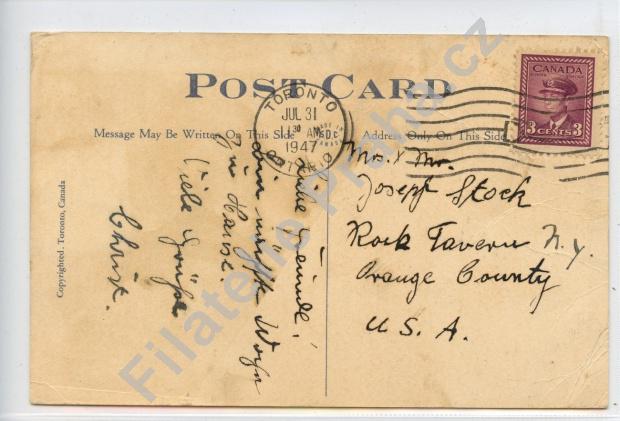 POST CARD
Message May Be Written On This Side
Address Only On This Side
TORONTO
JUL 31
11 30 AM
1947
ONTARIO
CANADA
3 CENTS 3
Mrs. & Mr.
Joseph Stock
Rock Tavern N.Y.
Orange County
U.S.A.
Liebe Freunde!
sind nächste Woche
zu Hause.
Viele Grüße
Christ.
Copyrighted. Toronto, Canada
Filatelie Praha.cz